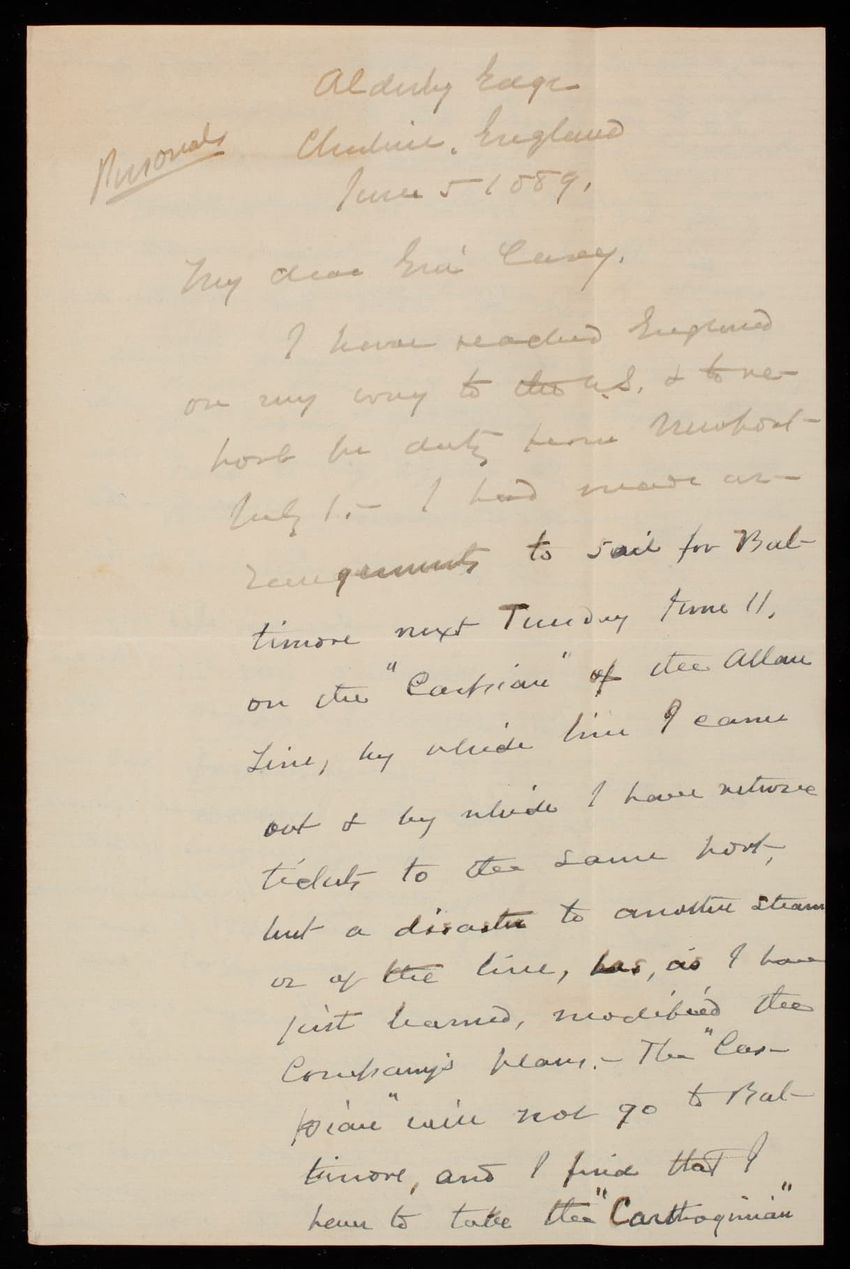 Alderly Edge
Personal
Cheshire, England
June 5 1889.
My dear Gen'l Casey,
I have reached England
on my way to the U.S. & to re-
port for duty from Newport
July 1.- I had made ar-
rangements to sail for Bal-
timore next Tuesday June 11,
on the "Caspian" of the Allan
Line, by which line I came
out & by which I have return
tickets to the same port,
but a disaster to another steam
er of the line, has, as I have
just learned, modified the
Company's plans.- The "Cas-
pian" will not go to Bal-
timore, and I find that I
have to take the "Carthaginian"